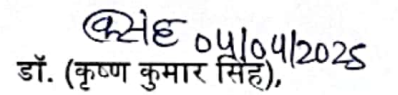 04/04/2025
डॉ. (कृष्ण कुमार सिंह),